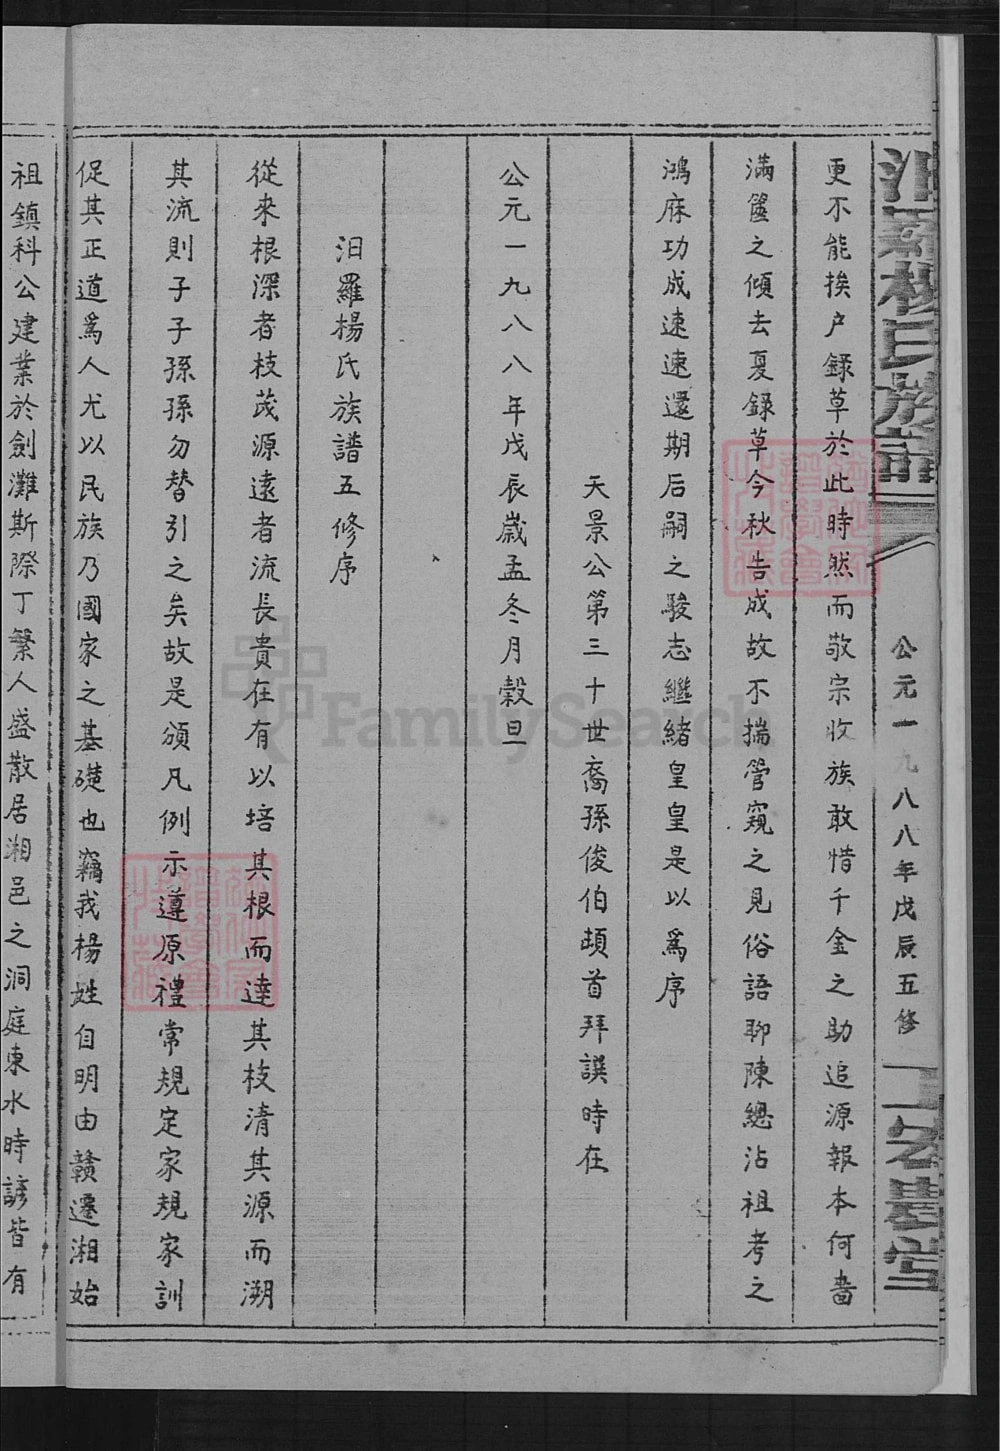 汨羅楊氏族譜
公元一九八八年戊辰五修
弘農堂
更不能挨户錄草於此時然而敬宗收族敢惜千金之助追源報本何嗇
滿篋之傾去夏錄草今秋告成故不揣管窺之見俗語聊陳總沾祖考之
鴻庥功成速速還期后嗣之駿志繼緒皇皇是以爲序
天景公第三十世裔孫俊伯頓首拜譔時在
公元一九八八年戊辰歲孟冬月穀旦
汨羅楊氏族譜五修序
從來根深者枝茂源遠者流長貴在有以培其根而達其枝清其源而溯
其流則子子孫孫勿替引之矣故是頒凡例示遵原禮常規定家規家訓
促其正道爲人尤以民族乃國家之基礎也竊我楊姓自明由贛遷湘始
祖鎮科公建業於劍灘斯際丁繁人盛散居湘邑之洞庭東水時諺皆有
FamilySearch